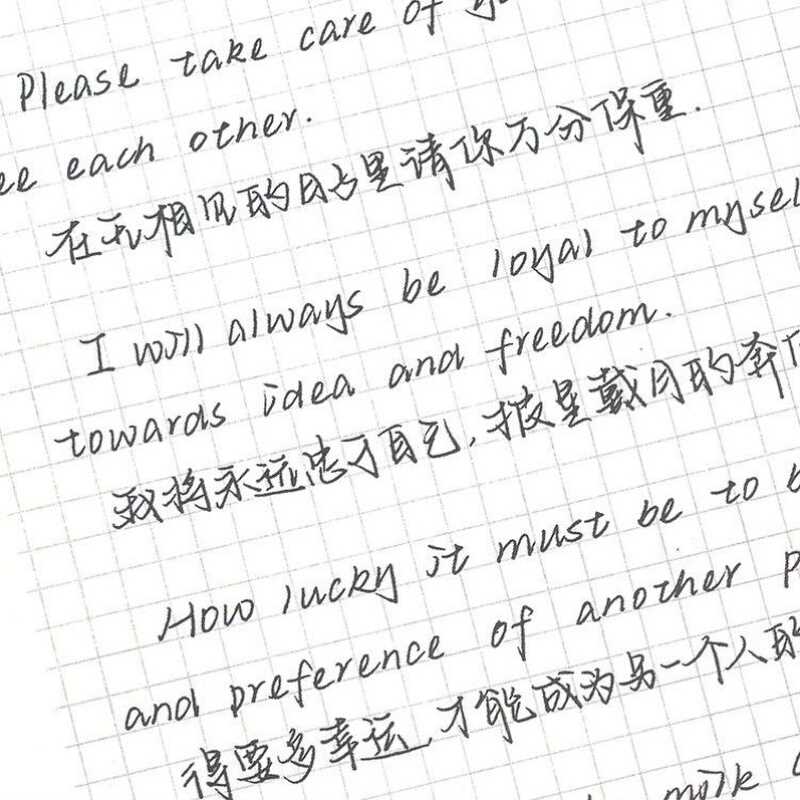 Please take care of
each other.
在无相见的日子里请你万分保重.
I will always be loyal to
towards idea and freedom.
我将永远忠于自己,披星戴月的奔
How lucky it must be to
and preference of another
得要多幸运,才能成为另一个人的
milk